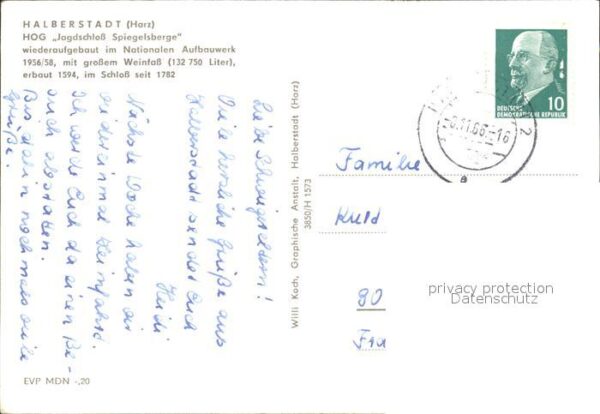 HALBERSTADT (Harz)
HOG „Jagdschloß Spiegelsberge"
wiederaufgebaut im Nationalen Aufbauwerk
1956/58, mit großem Weinfaß (132 750 Liter),
erbaut 1594, im Schloß seit 1782
Liebe Schwiegereltern!
Viele herzliche Grüße aus
Halberstadt sendet Euch
Heidi
Nächste Woche haben wir
wieder einmal Heimfahrt.
Ich werde Euch da einen Be-
such abstatten.
Bis dahin nochmals viele
Grüße.
EVP MDN -,20
Willi Koch, Graphische Anstalt, Halberstadt (Harz)
3850/H 1573
DEUTSCHE
DEMOKRATISCHE REPUBLIK
10
.11.66.-16
2
a
Familie
Kuld
90
privacy protection
Datenschutz